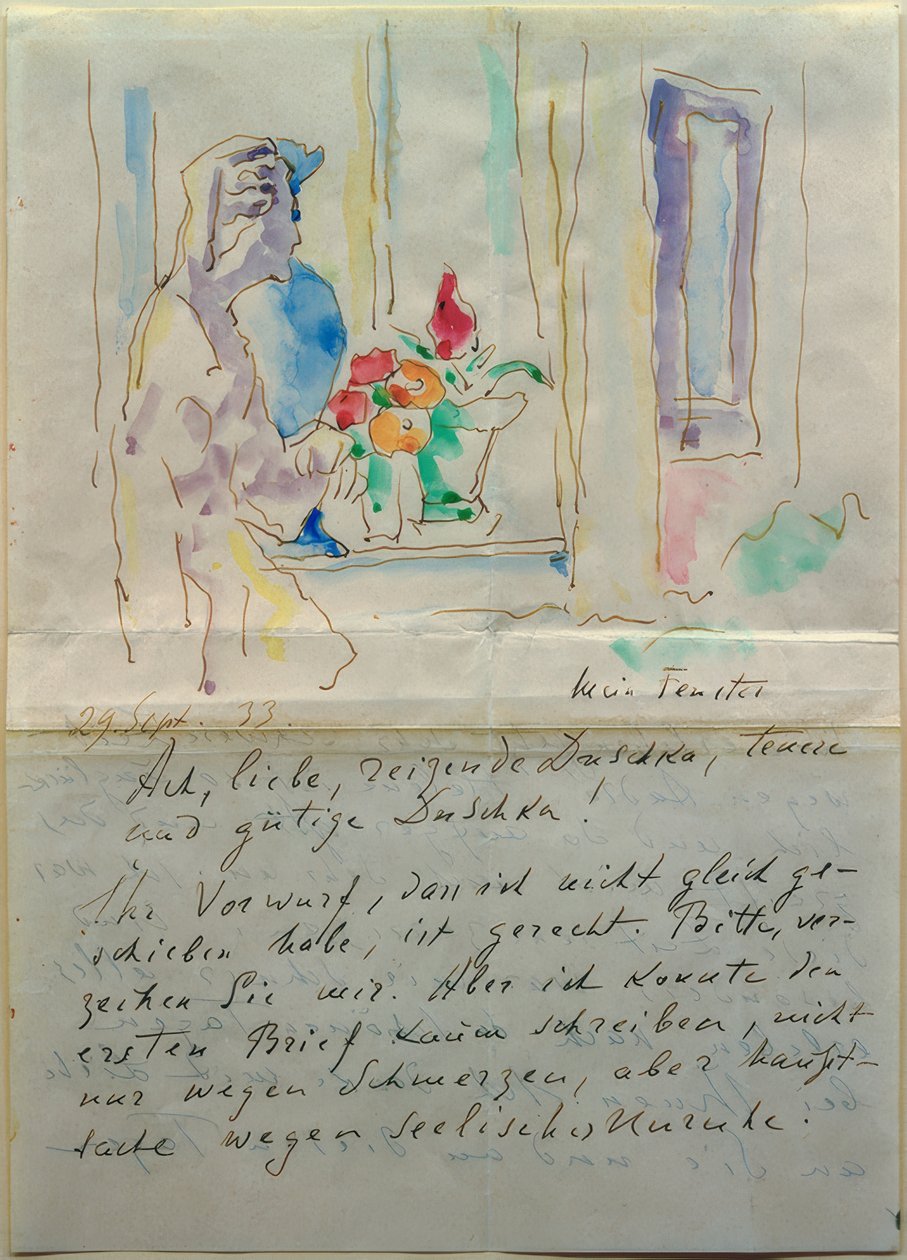 Mein Fenster
29. Sept. 33.
Ach, liebe, reizende Duschka, teuere
und gütige Duschka!
Ihr Vorwurf, dass ich nicht gleich ge-
schieben habe, ist gerecht. Bitte, ver-
zeihen Sie mir. Aber ich konnte den
ersten Brief kaum schreiben, nicht
nur wegen Schmerzen, aber haupt-
sache wegen seelischer Unruhe.